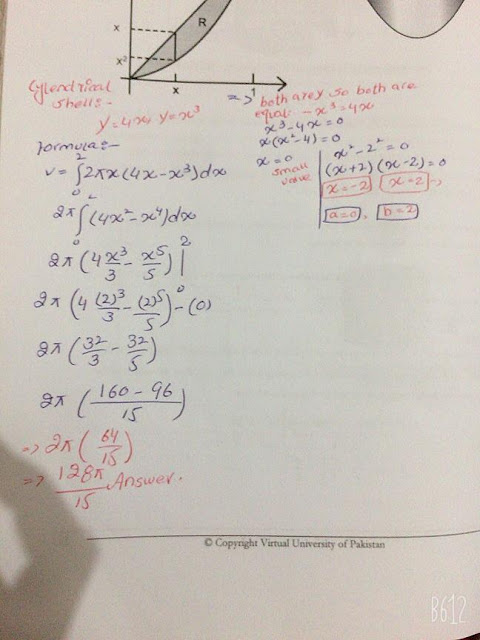 x
R
x²
x
1
Cylendrical
shells:-
y=4x, y=x³
=> both are y so both are
equal:- x³=4x
x³-4x=0
x(x²-4)=0
x=0
small
value
x²-2²=0
(x+2)(x-2)=0
x=-2 x=2
a=0, b=2
Formula:-
v=∫₀² 2πx(4x-x³)dx
2π∫₀² (4x²-x⁴)dx
2π(4x³/3 - x⁵/5)|₀²
2π(4(2)³/3 - (2)⁵/5) - (0)
2π(32/3 - 32/5)
2π(160-96/15)
=> 2π(64/15)
=> 128π/15 Answer.
© Copyright Virtual University of Pakistan
B612